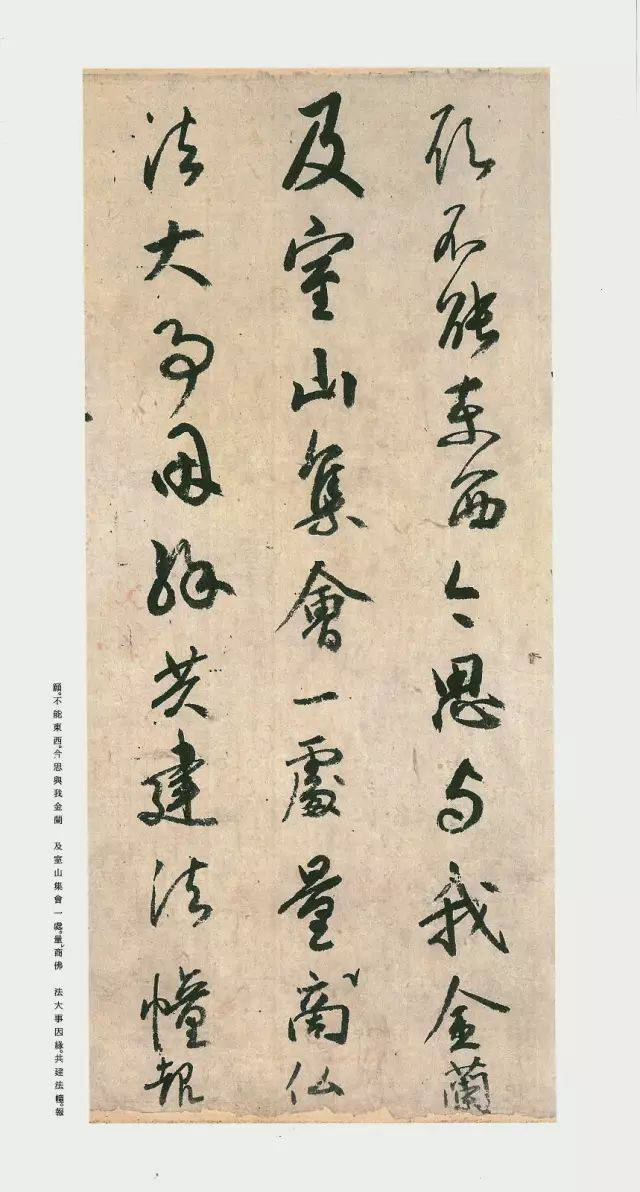 顾不能東西今思与我金蘭
及室山集會一處量商仏
法大事因緣共建法幢報
願。不能東西。今思與我金蘭　及室山集會一處。量商佛　法大事因緣。共建法幢。報